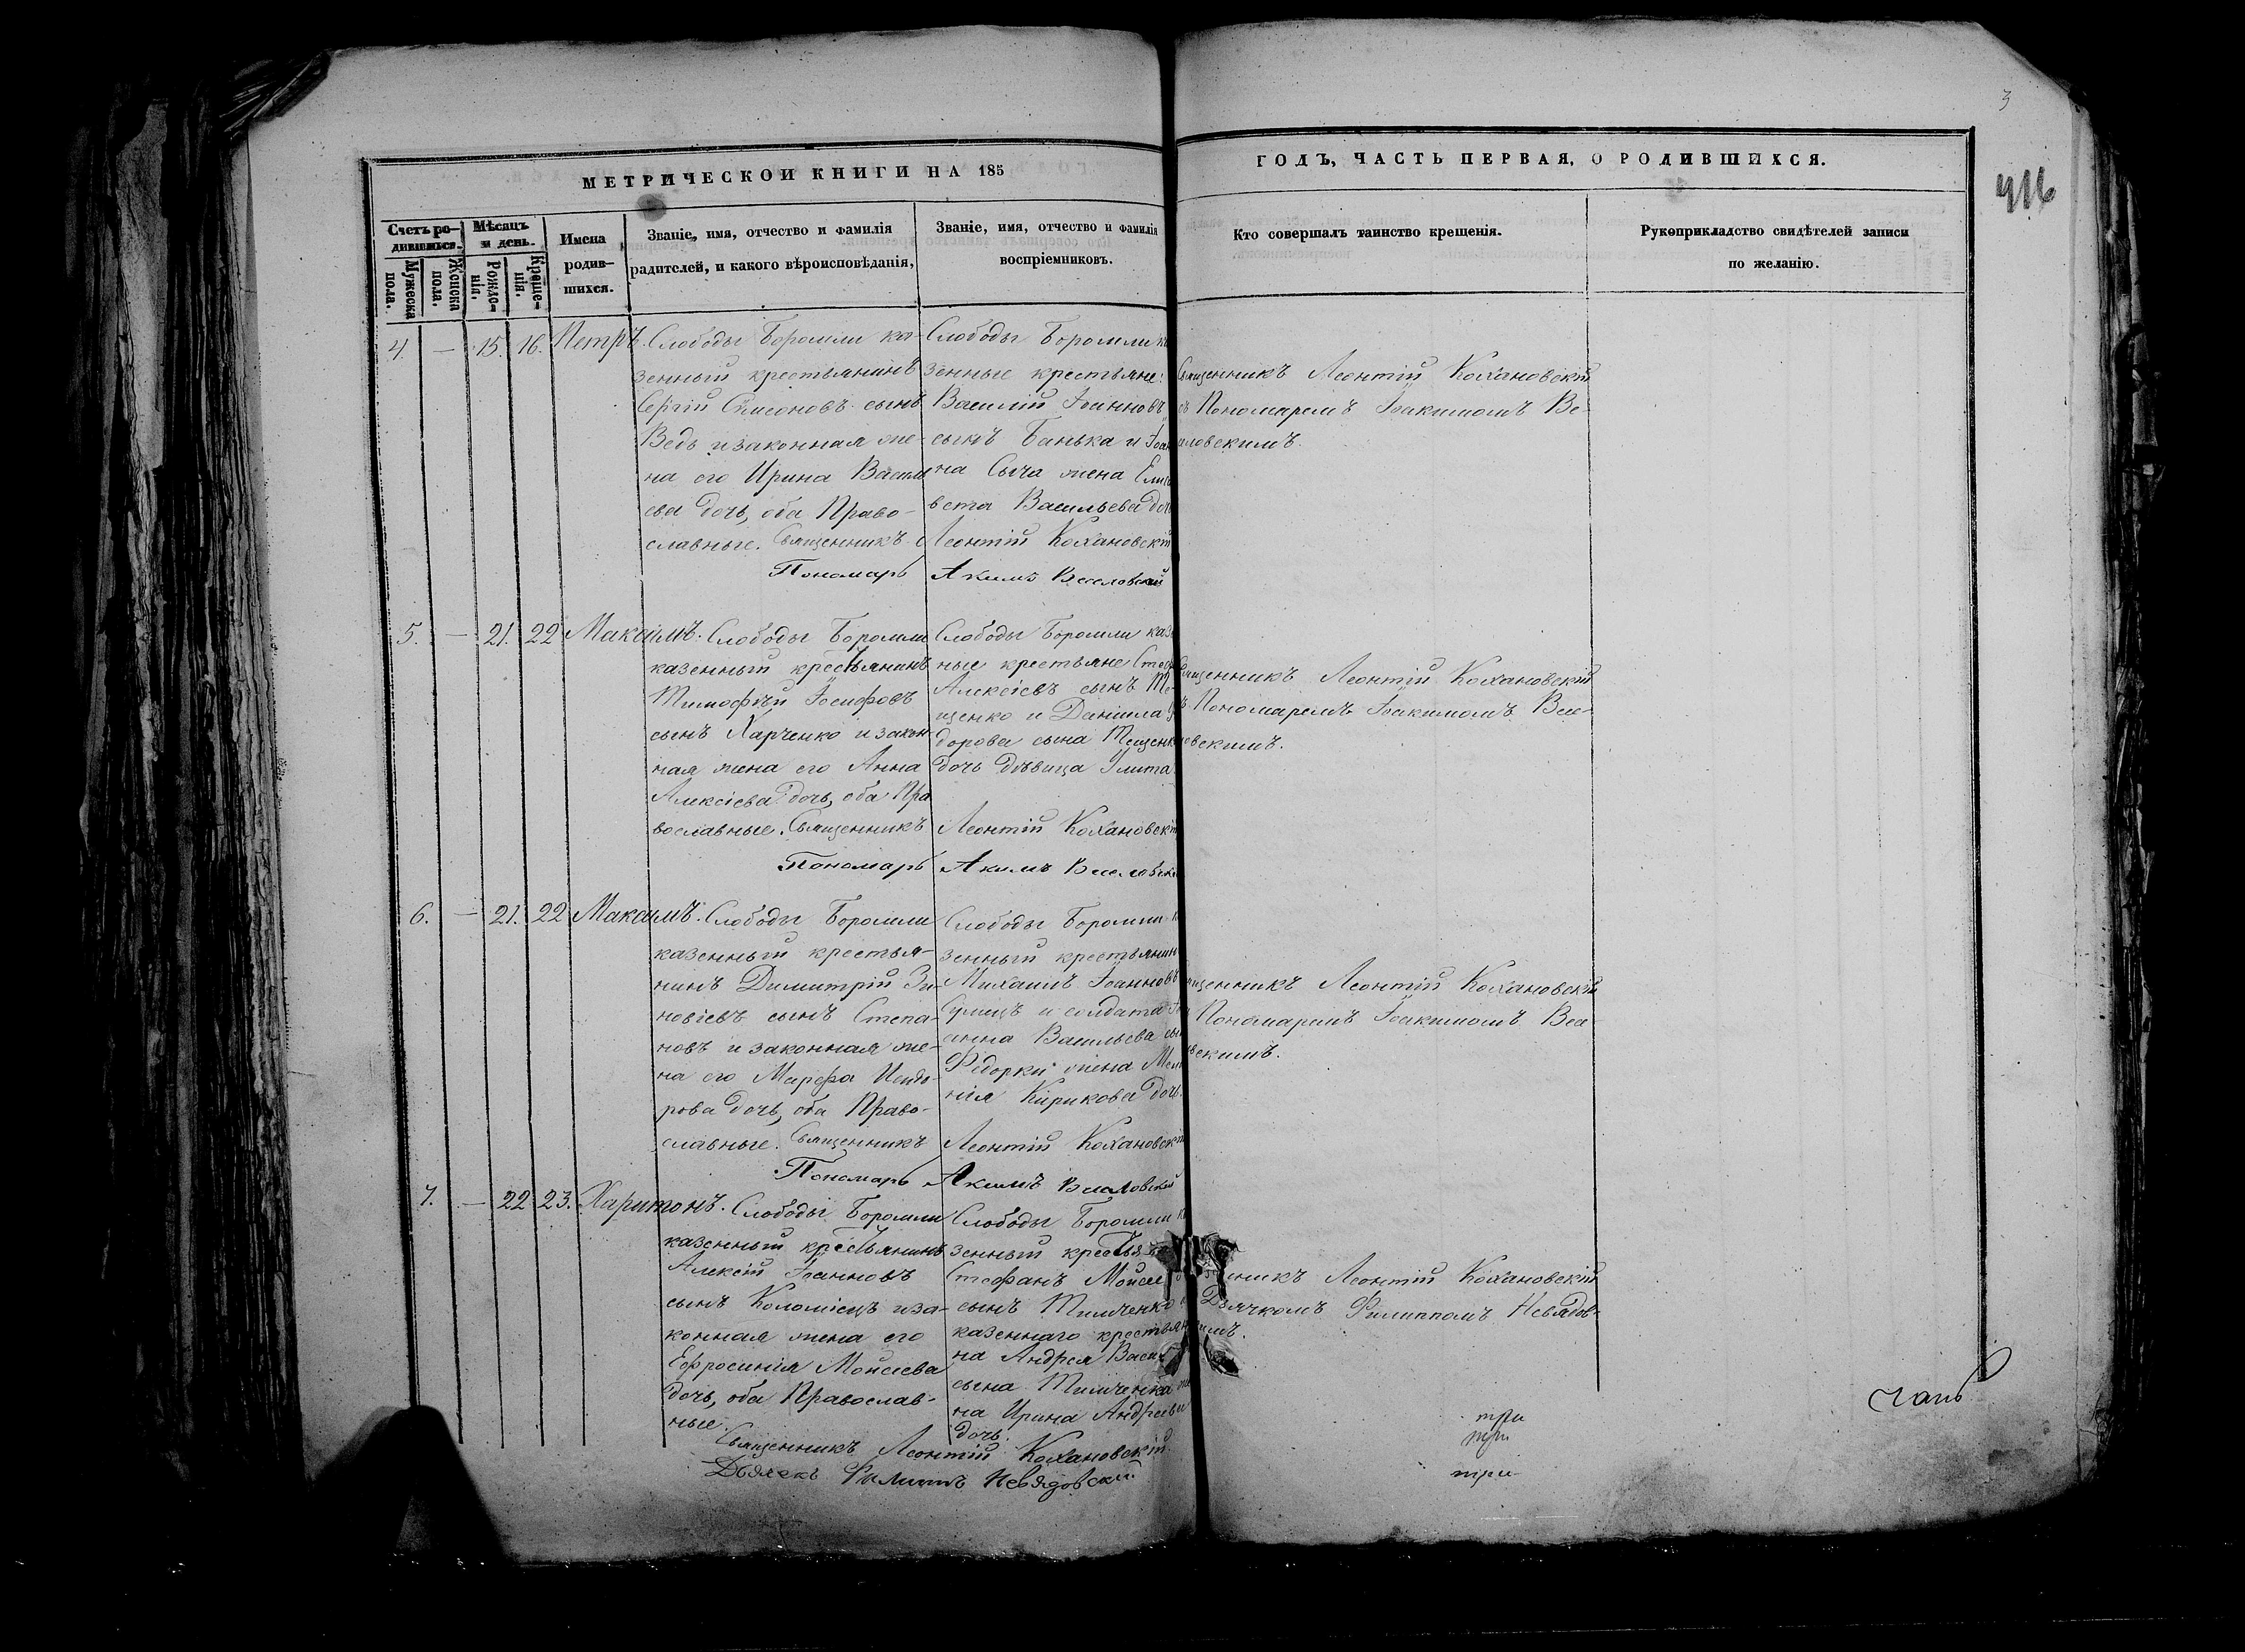 3
416
МЕТРИЧЕСКОЙ КНИГИ НА 185
ГОДЪ, ЧАСТЬ ПЕРВАЯ, О РОДИВШИХСЯ.
Счетъ ро-
дившихся.
Мужеска
пола.
Женска
пола.
Мѣсяцъ
и день.
Рожде-
нія.
Креще-
нія.
Имена
родив-
шихся.
Званіе, имя, отчество и фамилія
радителей, и какого вѣроисповѣданія,
Званіе, имя, отчество и фамилія
воспріемниковъ.
Кто совершалъ таинство крещенія.
Рукоприкладство свидѣтелей записи
по желанію.
4. — 15. 16. Петръ.
Слободы Боромли ка-
зенный крестьянинъ
Сергій Симеоновъ сынъ
Ведь и законная же-
на его Ирина Василі
ева дочь, оба Право-
славные. Священникъ
Пономарь
Слободы Боромли
зенные крестьяне:
Василій Іоанновъ
сынъ Банька и
на Сыча жена
вета Васильева
Леонтій Кохановскій
Акимъ Веселовскій
Священникъ Леонтій Кохановскій
съ Пономаремъ Іоакимомъ Ве-
ловскимъ.
5. — 21. 22 Максимъ.
Слободы Боромли
казенный крестьянинъ
Тимофѣй Іосифовъ
сынъ Харченко и закон
ная жена его Анна
Алексіева дочь, оба Пра
вославные. Священникъ
Пономарь
Слободы Боромли каз
ные крестьяне
Алексіевъ сынъ
щенко и Даніила
дорова сына Тещенк
дочь дѣвица Улита.
Леонтій Кохановскій
Акимъ Веселовскі
щенникъ Леонтій Кохановскій
Пономаремъ Іоакимомъ Весе-
ловскимъ.
6. — 21. 22 Максимъ.
Слободы Боромли
казенный крестья-
нинъ Димитрій Зи-
новіевъ сынъ Степа-
новъ и законная же-
на его Марфа Исидо-
рова дочь, оба Право-
славные. Священникъ
Пономарь
Слободы Боромли
зенный крестьянин
Михаилъ Іоанновъ
и солдата
анна Васильева
Федорки жена
нія Кирикова дочь.
Леонтій Кохановскій
Акимъ Веселовскій
щенникъ Леонтій Кохановскій
Пономаремъ Іоакимомъ Весе
вскимъ.
7. — 22 23. Харитонъ.
Слободы Боромли
казенный крестьянинъ
Алексій Іоанновъ
сынъ Коломіецъ и за-
конная жена его
Ефросинія Моисеева
дочь, оба Православ-
ные.
Слободы Боромли
зенный крестья
Стефанъ Моисе
сынъ Тимченко
казеннаго крестьян
на Андрея Васи
сына Тимченка
на Ирина Андреева
дочь.
Священникъ Леонтій Кохановскій.
Дьячекъ Филиппъ Невядовскій
никъ Леонтій Кохановскій
Дьячкомъ Филиппомъ Невядов-
имъ.
три
три
три